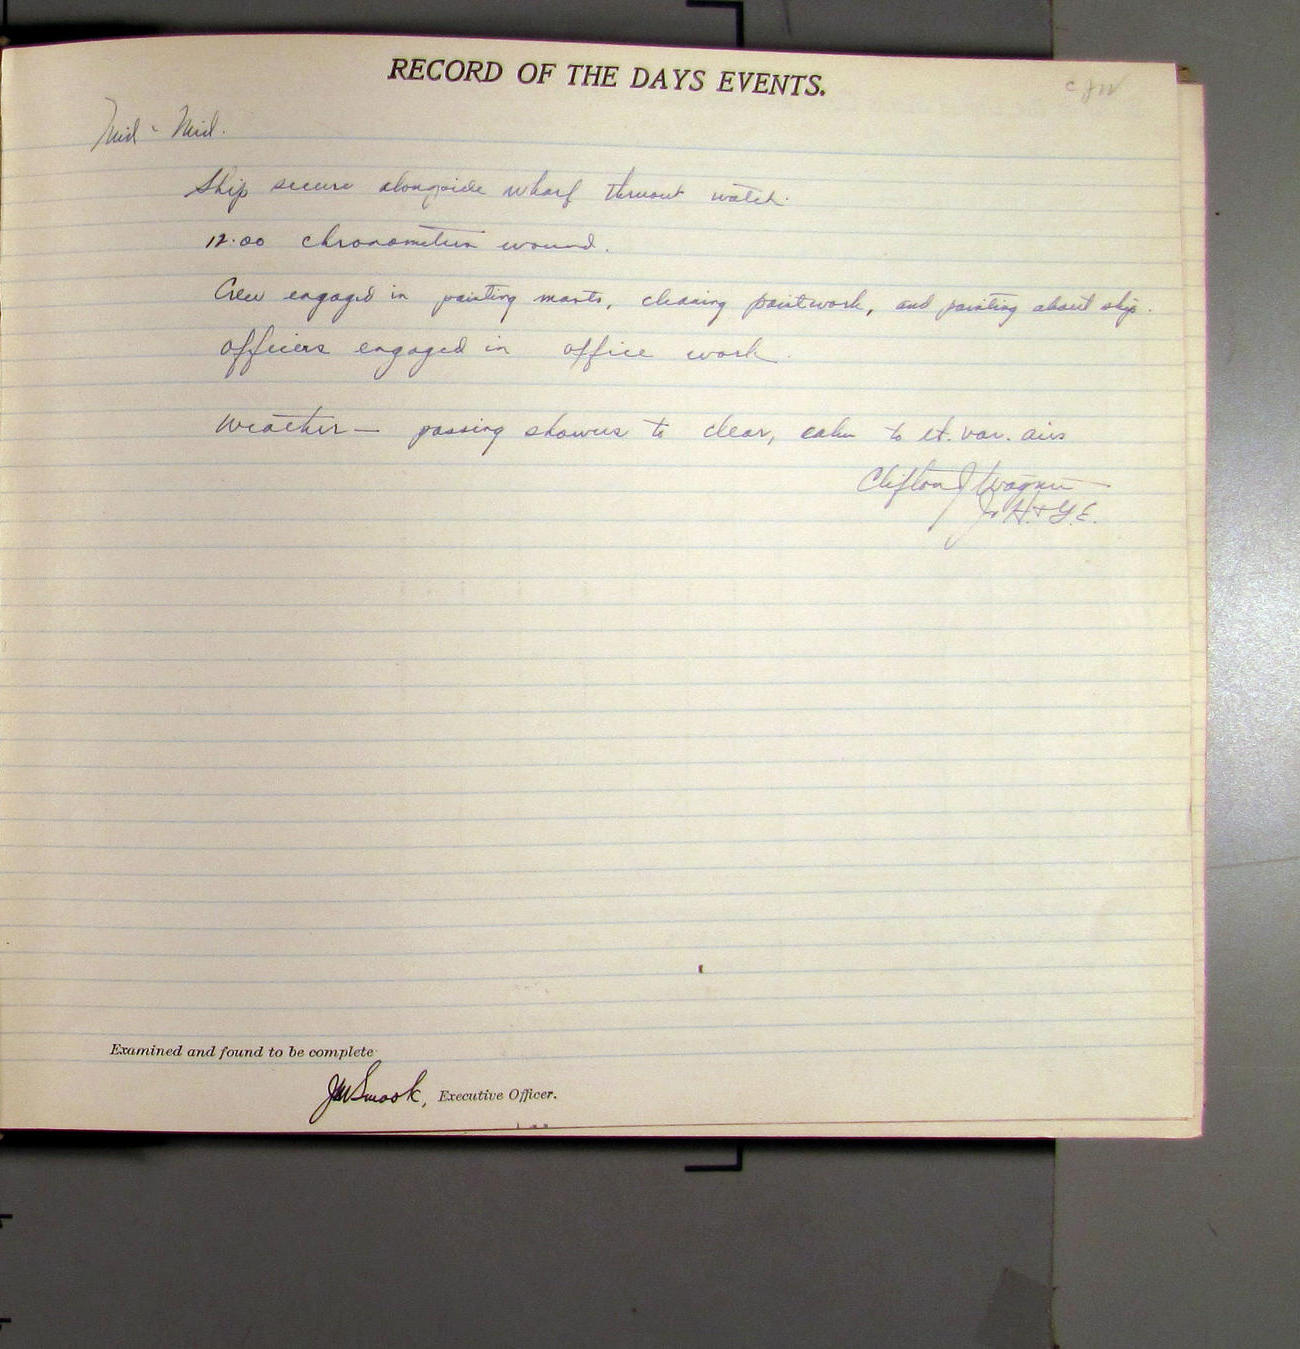 RECORD OF THE DAYS EVENTS.
CJW
Mid - Mid.
Ship secure alongside wharf thruout watch.
12.00 chronometers wound.
Crew engaged in painting masts, cleaning paintwork, and painting about ship.
Officers engaged in office work.
Weather — passing showers to clear, calm to lt. var. airs
Clifton J Wagner
Jr H. & G. E.
Examined and found to be complete
JM Smook, Executive Officer.